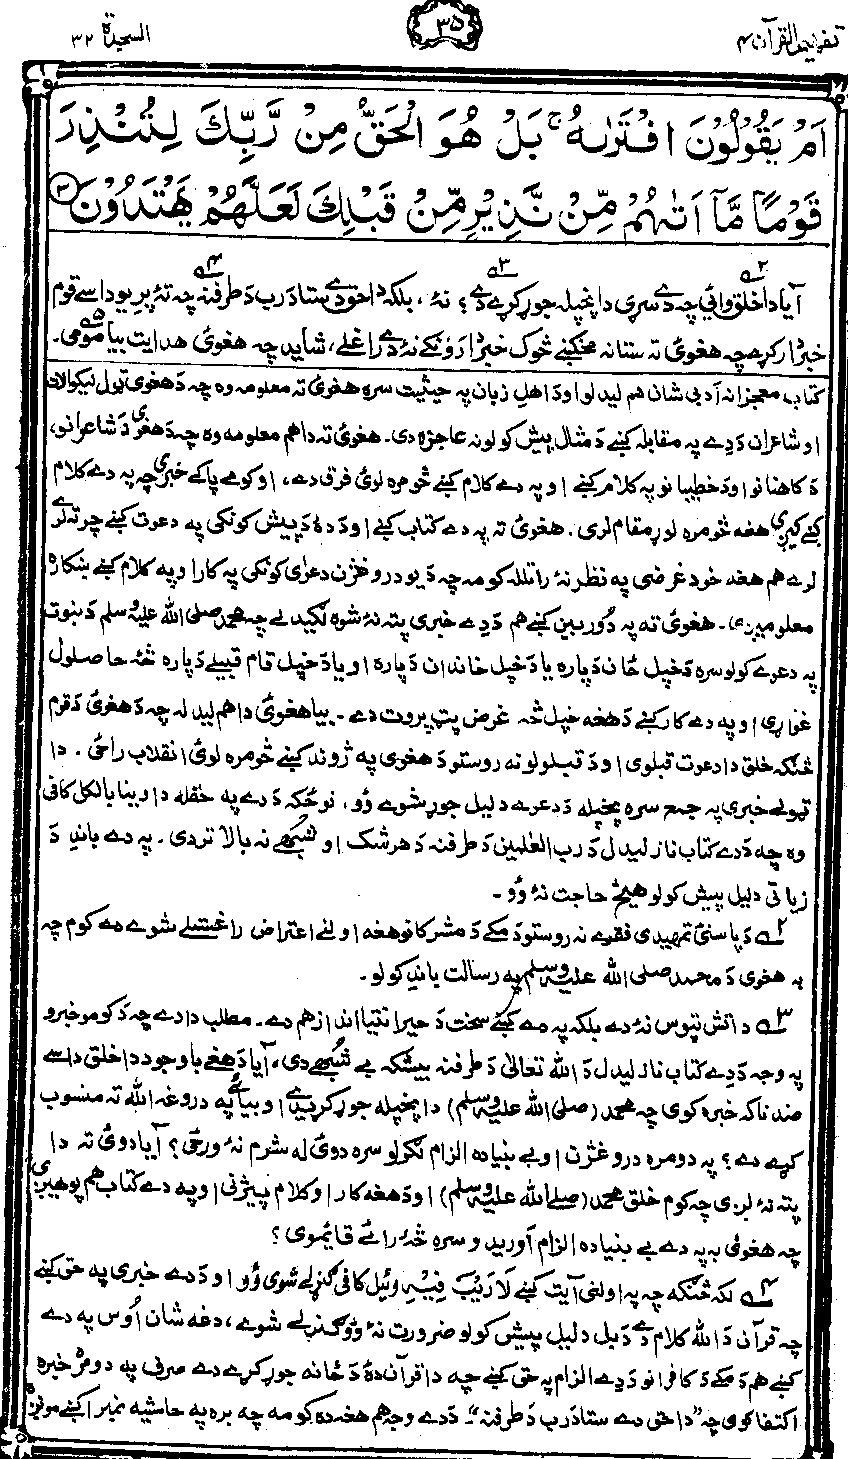 تفهیم القرآن ۴
۳۵
السجدة ۳۲
اَمْ يَقُوْلُوْنَ افْتَرٰىهُ ۚ بَلْ هُوَ الْحَقُّ مِنْ رَّبِّكَ لِتُنْذِرَ
قَوْمًا مَّآ اَتٰىهُمْ مِّنْ نَّذِيْرٍ مِّنْ قَبْلِكَ لَعَلَّهُمْ يَهْتَدُوْنَ ۳
آیا دا خلق وائي چه دے سړی دا پخپله جوړ کړے دے ؟ نهٔ ، بلکه دا حق دے ستا د رب د طرفنه چه تهٔ پرې یو داسے قوم
خبردار کړے چه هغوئ ته ستا نه مخکښے څوک خبردار ؤنکے نهٔ دے راغلے ، شاید چه هغوئ هدایت بیامومی .
کتاب معجزانه ادبی شان هم لیدلو او د اهلِ زبان په حیثیت سره هغوئ ته معلومه وه چه د هغوئ ټول لیکوالان
او شاعران د دے په مقابله کښے د مثال پیش کولو نه عاجزه دی . هغوئ ته دا هم معلومه وه چه د هغوئ د شاعرانو ،
د کاهنانو او د خطیبانو په کلام کښے او په دے کلام کښے څومره لوئ فرق دے ، او کومے پاکے خبرې چه په دے کلام
کښے کیږی هغه څومره لوړ مقام لری . هغوئ ته په دے کتاب کښے او د دهٔ د پیش کونکی په دعوت کښے چرته لرے
لرے هم هغه خود غرضی په نظر نهٔ راتلله کومه چه د یو دروغژن دعوٰی کونکی په کار او په کلام کښے ښکاره
معلومیږی . هغوئ ته په دُوربین کښے هم د دے خبرې پته نهٔ شوه لګیدلے چه محمد صلی الله علیه وسلم د نبوت
په دعوے کولو سره د خپل ځان دپاره یا د خپل خاندان دپاره او یا د خپل قام قبیلے دپاره څهٔ حاصلول
غواړی او په دے کار کښے د هغه خپل څهٔ غرض پټ پروت دے . بیا هغوئ دا هم لیدله چه د هغوئ د قوم
څنګه خلق دا دعوت قبلوی او د قبلولو نه روستو د هغوی په ژوند کښے څومره لوئ انقلاب راځی . دا
ټولے خبرې په جمع سره پخپله د دعوے دلیل جوړ شوے ؤو ، نو ځکه د دے په حقله دا وینا بالکل کافی
وه چه د دے کتاب نازلیدل د رب العٰلمین د طرفنه د هر شک او شُبهے نه بالا تر دی . په دے باندِ د
زیاتی دلیل پیش کولو هیڅ حاجت نهٔ ؤو .
۲ د پاسنئ تمهیدی فقرے نه روستو د مکے د مشرکانو هغه اولنے اعتراض راغستلے شوے دے کوم چه
به هغوی د محمد صلی الله علیه وسلم په رسالت باندِ کولو .
۳ دا تش تپوس نهٔ دے بلکه په دے کښے سخت د حیرانتیا انداز هم دے . مطلب دا دے چه د کومو خبرو
په وجه د دے کتاب نازلیدل د الله تعالیٰ د طرفنه بیشکه بے شُبهے دی ، آیا د هغے باوجود دا خلق داسے
ضدناکه خبره کوی چه محمد (صلی الله علیه وسلم) دا پخپله جوړ کړیدے او بیا ئے په دروغه الله ته منسوب
کړے دے ؟ په دومره دروغژن او بے بنیاده الزام لګولو سره دوئ له شرم نهٔ ورځی ؟ آیا دوئ ته دا
پته نهٔ لری چه کوم خلق محمد (صلی الله علیه وسلم) او د هغه کار او کلام پیژنی او په دے کتاب هم پوهیږی
چه هغوئ به په دے بے بنیاده الزام آوریدو سره څهٔ رائے قائموی ؟
۴ لکه څنګه چه په اولنی آیت کښے لَا رَيْبَ فِيْهِ وئیل کافی ګنړلے شوی ؤو او د دے خبرې په حق کښے
چه قرآن د الله کلام دے د بل دلیل پیش کولو ضرورت نهٔ ؤو ګنړلے شوے ، دغه شان اُوس په دے
کښے هم د مکے د کافرانو د دے الزام په حق کښے چه دا قرآن دهٔ د ځانه جوړ کړے دے صرف په دومره خبره
اکتفا کوی چه ”دا حق دے ستا د رب د طرفنه“۔ د دے وجه هم هغه ده کومه چه بره په حاشیه نمبر ا کښے مونږ